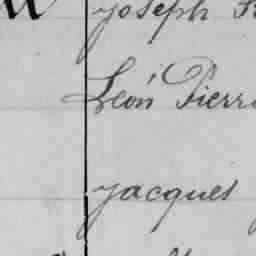 Joseph
Léon Pierre
Jacques